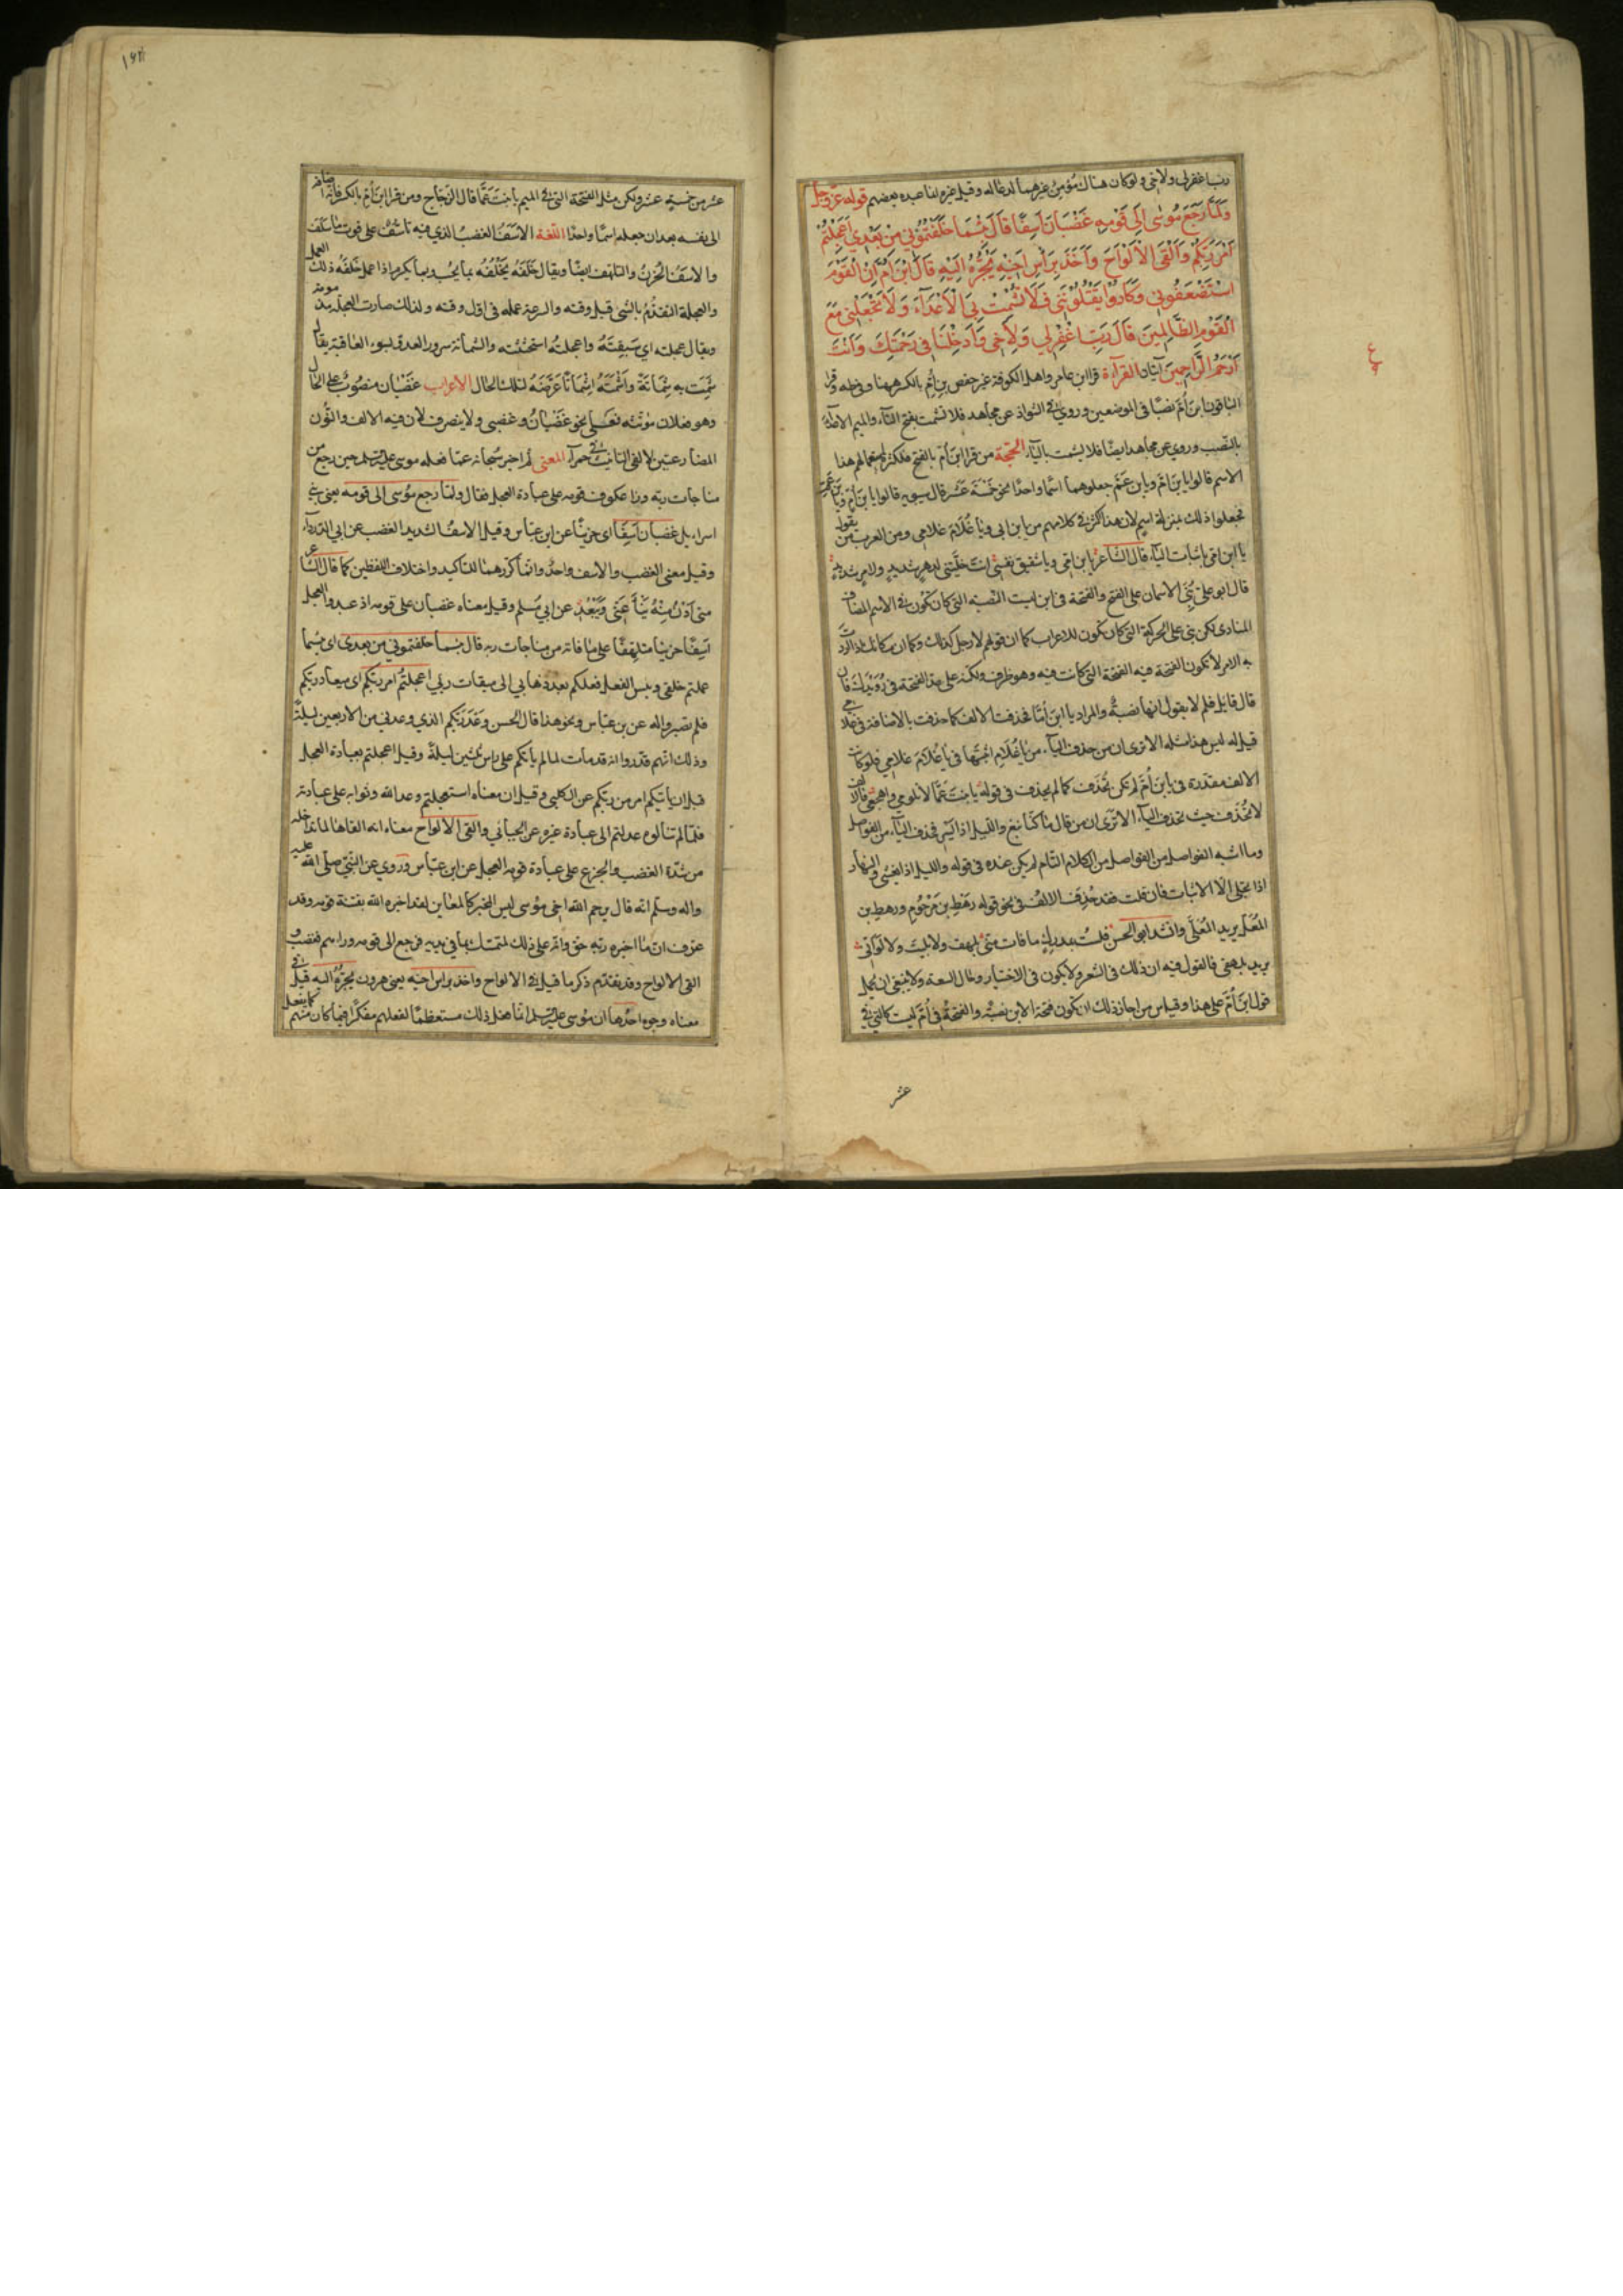 رب اغفر لي ولاخي ولو كان هناك مؤمن غيرهما لدعا له وقيل غيره لما عبده بعضهم قوله عزّ وجلّ
وَلَمَّا رَجَعَ مُوسٰى اِلٰى قَوْمِهِ غَضْبَانَ اَسِفًا قَالَ بِئْسَمَا خَلَفْتُمُوْنِي مِنْ بَعْدِي اَعَجِلْتُمْ
اَمْرَ رَبِّكُمْ وَاَلْقَى الْاَلْوَاحَ وَاَخَذَ بِرَأْسِ اَخِيْهِ يَجُرُّهُ اِلَيْهِ قَالَ ابْنَ اُمَّ اِنَّ الْقَوْمَ
اسْتَضْعَفُونِي وَكَادُوْا يَقْتُلُوْنَنِي فَلَا تُشْمِتْ بِيَ الْاَعْدَآءَ وَلَا تَجْعَلْنِي مَعَ
الْقَوْمِ الظَّالِمِينَ قَالَ رَبِّ اغْفِرْ لِي وَلِاَخِي وَاَدْخِلْنَا فِي رَحْمَتِكَ وَاَنْتَ
اَرْحَمُ الرَّاحِمِينَ آيتان القرآءة قرا ابن عامر واهل الكوفة غير حفص ابن اُمِّ بالكسر ههنا وفي طه وقرا
الباقون ابن اُمَّ نصبًا في الموضعين وروي في الشواذ عن مجاهد فلا تشمت بفتح التآء والميم الاعدآءَ
بالنصب وروي عن مجاهد ايضًا فلا يشمت باليآء الحجّة من قرا ابنَ اُمَّ بالفتح فلكثرة استعمالهم هذا
الاسم قالوا يا بن امّ ويا بن عمّ جعلوهما اسمًا واحدًا نحو خَمْسَةَ عَشَرَ قال سيبويه قالوا يا بنَ اُمَّ ويا بن عَمَّ
فجعلوا ذلك بمنزلة اسم لان هذا اكثر في كلامهم من يا ابن ابي ويا غُلَامَ غلامي ومن العرب من يقول
يا ابن امّي باثبات اليآء قال الشاعر يا ابن امّي ويا شقيق نفسي انت خلّيتني لدهرٍ شديدٍ
قال ابو علي بُنِيَ الاسمان على الفتح والفتحة في ابن ليست النصبة التي كان تكون في الاسم المضاف
المنادى لكن بني على الحركة التي كان تكون للاعراب كما ان قولهم لا رجل كذلك وكما ان
به الامر لا تكون الفتحة فيه الفتحة التي كانت فيه وهو ظرف ولكنه على حدّ الفتحة في رُوَيْدَكَ فان
قال قائل فلم لا يقول انها نصبةٌ والمراد يا ابن اُمّا فحذفت الالف كما حذفت يآء الاضافة في غلامي
قيل له ليس هذا مثله الا ترى ان من حذف اليآء من يا غُلَامِ اثبتها في يا غُلَامَ غلامي فلو كانت
الالف مقدرة في يا بنَ اُمَّ لم تكن تُحذَف كما لم يحذف في قوله يا بنت عَمّا لا تلومي واهجعي فالالف
لا تُحذَف حيث تحذف اليآء الا ترى ان من قال ما كنّا نبغ والليل اذا يسر فحذف اليآء من الفواصل
وما اشبه الفواصل من الكلام التام لم يكن عنده في قوله والليل اذا يغشى والنهار
اذا تجلى الا الاثبات فان قلت فقد حُذِفَ الالف في نحو قوله رَهْطِ بن مَرْجُومٍ ورهط بن
المُعَلّ يريد المُعَلَّى وانشد ابو الحسن فلستُ بمدركٍ ما فات منّي بلهف ولا بليت ولا لوَ انّي
يريد بلهفى فالقول فيه ان ذلك في الشعر ولا يكون في الاختيار وحال السعة ولا ينبغي ان يحمل
قول ابنَ اُمَّ على هذا وقياس من اجاز ذلك ان تكون فتحة الابن نصبةً والفتحةُ في اُمَّ ليست كالتي في
عشر
١٩٣
عشر من خمسة عشر ولكن مثل الفتحة التي في الميم يا بنت عَمّا قال الزجاج ومن قرا ابن اُمِّ بالكسر فانه اضافه
الى نفسه بعد ان جعله اسمًا واحدًا اللّغة الاسَفُ الغضب الذي فيه تاسُّف على فوت ما سلف
والاسفُ الحُزنُ والتلهف ايضًا ويقال خَلَفَهُ يَخْلُفُهُ بما يحبُّ وبما يكره اذا عمل خَلْفَه ذلك العمل
والعجلة التقدُّمُ بالشي قبل وقته والسرعة عمله في اول وقته ولذلك صارت العجلة مذمومة
ويقال عجلته اي سَبَقْتَهُ واعجلتُه استحثثته والشماتة سرور العدو بسوء العاقبة يقال
شَمِتَ به شَمَاتَةً واَشْمَتَهُ اِشْمَاتًا عَرَّضَهُ لتلك الحال الاعراب غضبان منصوبٌ على الحال
وهو فعلان مؤنثه فَعْلَى نحو غَضْبَانُ وغضبى ولا ينصرف لان فيه الالف والنون
المضارعتين لالفي التانيث في حمرآء المعنى ثم اخبر سبحانه عمّا فعله موسى عليه السلم حين رجع من
مناجات ربه وراى عكوف قومه على عبادة العجل فقال ولمّا رجع مُوسى الى قومه يعني بني
اسرائيل غضبان اَسِفًا اى حزينًا عن ابن عباس وقيل الاسفُ الشديد الغضب عن ابي الدردآء
وقيل معنى الغضب والاسف واحدٌ وانما كرّرهما للتاكيد واختلاف اللفظين كما قال الشاعر
متى اَدْنُ مِنْهُ يَنْأَ عَنّي وَيَبْعُدِ عن ابي مسلم وقيل معناه غضبان على قومه اذ عبدوا العجل
اَسِفًا حزينًا متلهفًا على ما فاته من مناجات ربه قال بئسما خلفتموني من بعدى اى بئسما
عملتم خلفي وبئس الفعل فعلكم بعد ذهابي الى ميقات ربي اعجلتُم امر ربّكم اى ميعاد ربكم
فلم تصبروا له عن بن عباس ونحو هذا قال الحسن وَعْدَ رَبِّكم الذي وعدني من الاربعين ليلةً
وذلك انّهم قدّروا انه قد مات لما لم ياتكم على راس ثلثين ليلةً وقيل اعجلتم بعبادة العجل
قبل ان ياتيكم امر من ربّكم عن الكلبي وقيل ان معناه استعجلتم وعد الله وثوابه على عبادته
فلمّا لم تنالوه عدلتم الى عبادة غيره عن الجبائي والقى الالواح معناه انه القاها لما تداخله
من شدّة الغضب والجزع على عبادة قومه العجل عن ابن عباس وروي عن النبيّ صلّى الله عليه
واله وسلم انه قال يرحم الله اخي مُوسى ليس المخبر كالمعاين لقد اخبره الله بفتنة قومه وقد
عرف ان ما اخبره ربّه حق وانه على ذلك لمتمسك بما في يديه فرجع الى قومه وراهم فغضب و
القى الالواح وقد تقدّم ذكر ما قيل في الالواح واخذ براس اخيه يعني هرون يجُرّهُ اليه قيل في
معناه وجوه احدُها ان مُوسى عليه السلم انما فعل ذلك مستعظمًا لفعلهم مفكّرًا فيما كان منهم كما يفعل